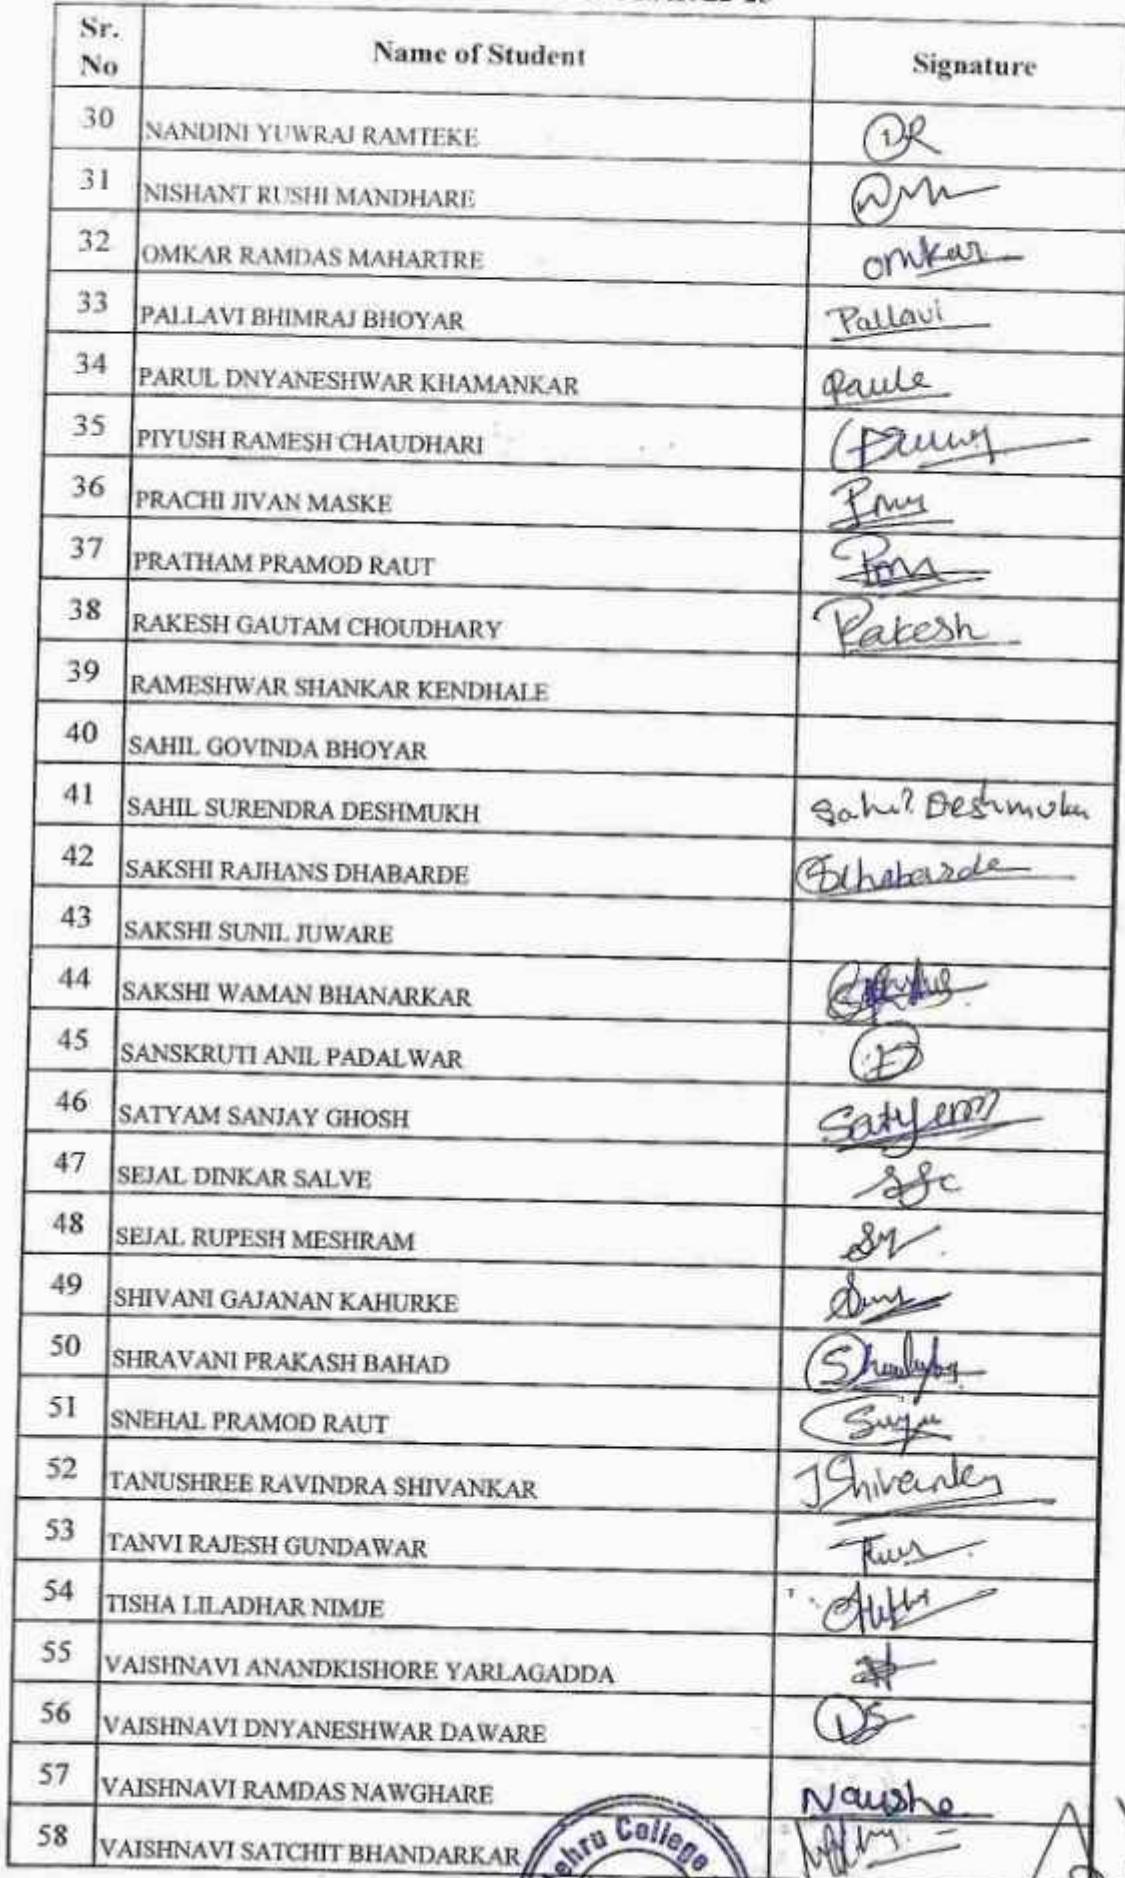 Sr. No Name of Student Signature
30 NANDINI YUWRAJ RAMTEKE
31 NISHANT RUSHI MANDHARE
32 OMKAR RAMDAS MAHARTRE omkar
33 PALLAVI BHIMRAJ BHOYAR Pallavi
34 PARUL DNYANESHWAR KHAMANKAR
35 PIYUSH RAMESH CHAUDHARI
36 PRACHI JIVAN MASKE
37 PRATHAM PRAMOD RAUT
38 RAKESH GAUTAM CHOUDHARY Rakesh
39 RAMESHWAR SHANKAR KENDHALE
40 SAHIL GOVINDA BHOYAR
41 SAHIL SURENDRA DESHMUKH Sahil Deshmukh
42 SAKSHI RAJHANS DHABARDE SDhabarde
43 SAKSHI SUNIL JUWARE
44 SAKSHI WAMAN BHANARKAR
45 SANSKRUTI ANIL PADALWAR
46 SATYAM SANJAY GHOSH Satyam
47 SEJAL DINKAR SALVE
48 SEJAL RUPESH MESHRAM
49 SHIVANI GAJANAN KAHURKE
50 SHRAVANI PRAKASH BAHAD
51 SNEHAL PRAMOD RAUT
52 TANUSHREE RAVINDRA SHIVANKAR
53 TANVI RAJESH GUNDAWAR
54 TISHA LILADHAR NIMJE
55 VAISHNAVI ANANDKISHORE YARLAGADDA
56 VAISHNAVI DNYANESHWAR DAWARE
57 VAISHNAVI RAMDAS NAWGHARE
58 VAISHNAVI SATCHIT BHANDARKAR
ehru College